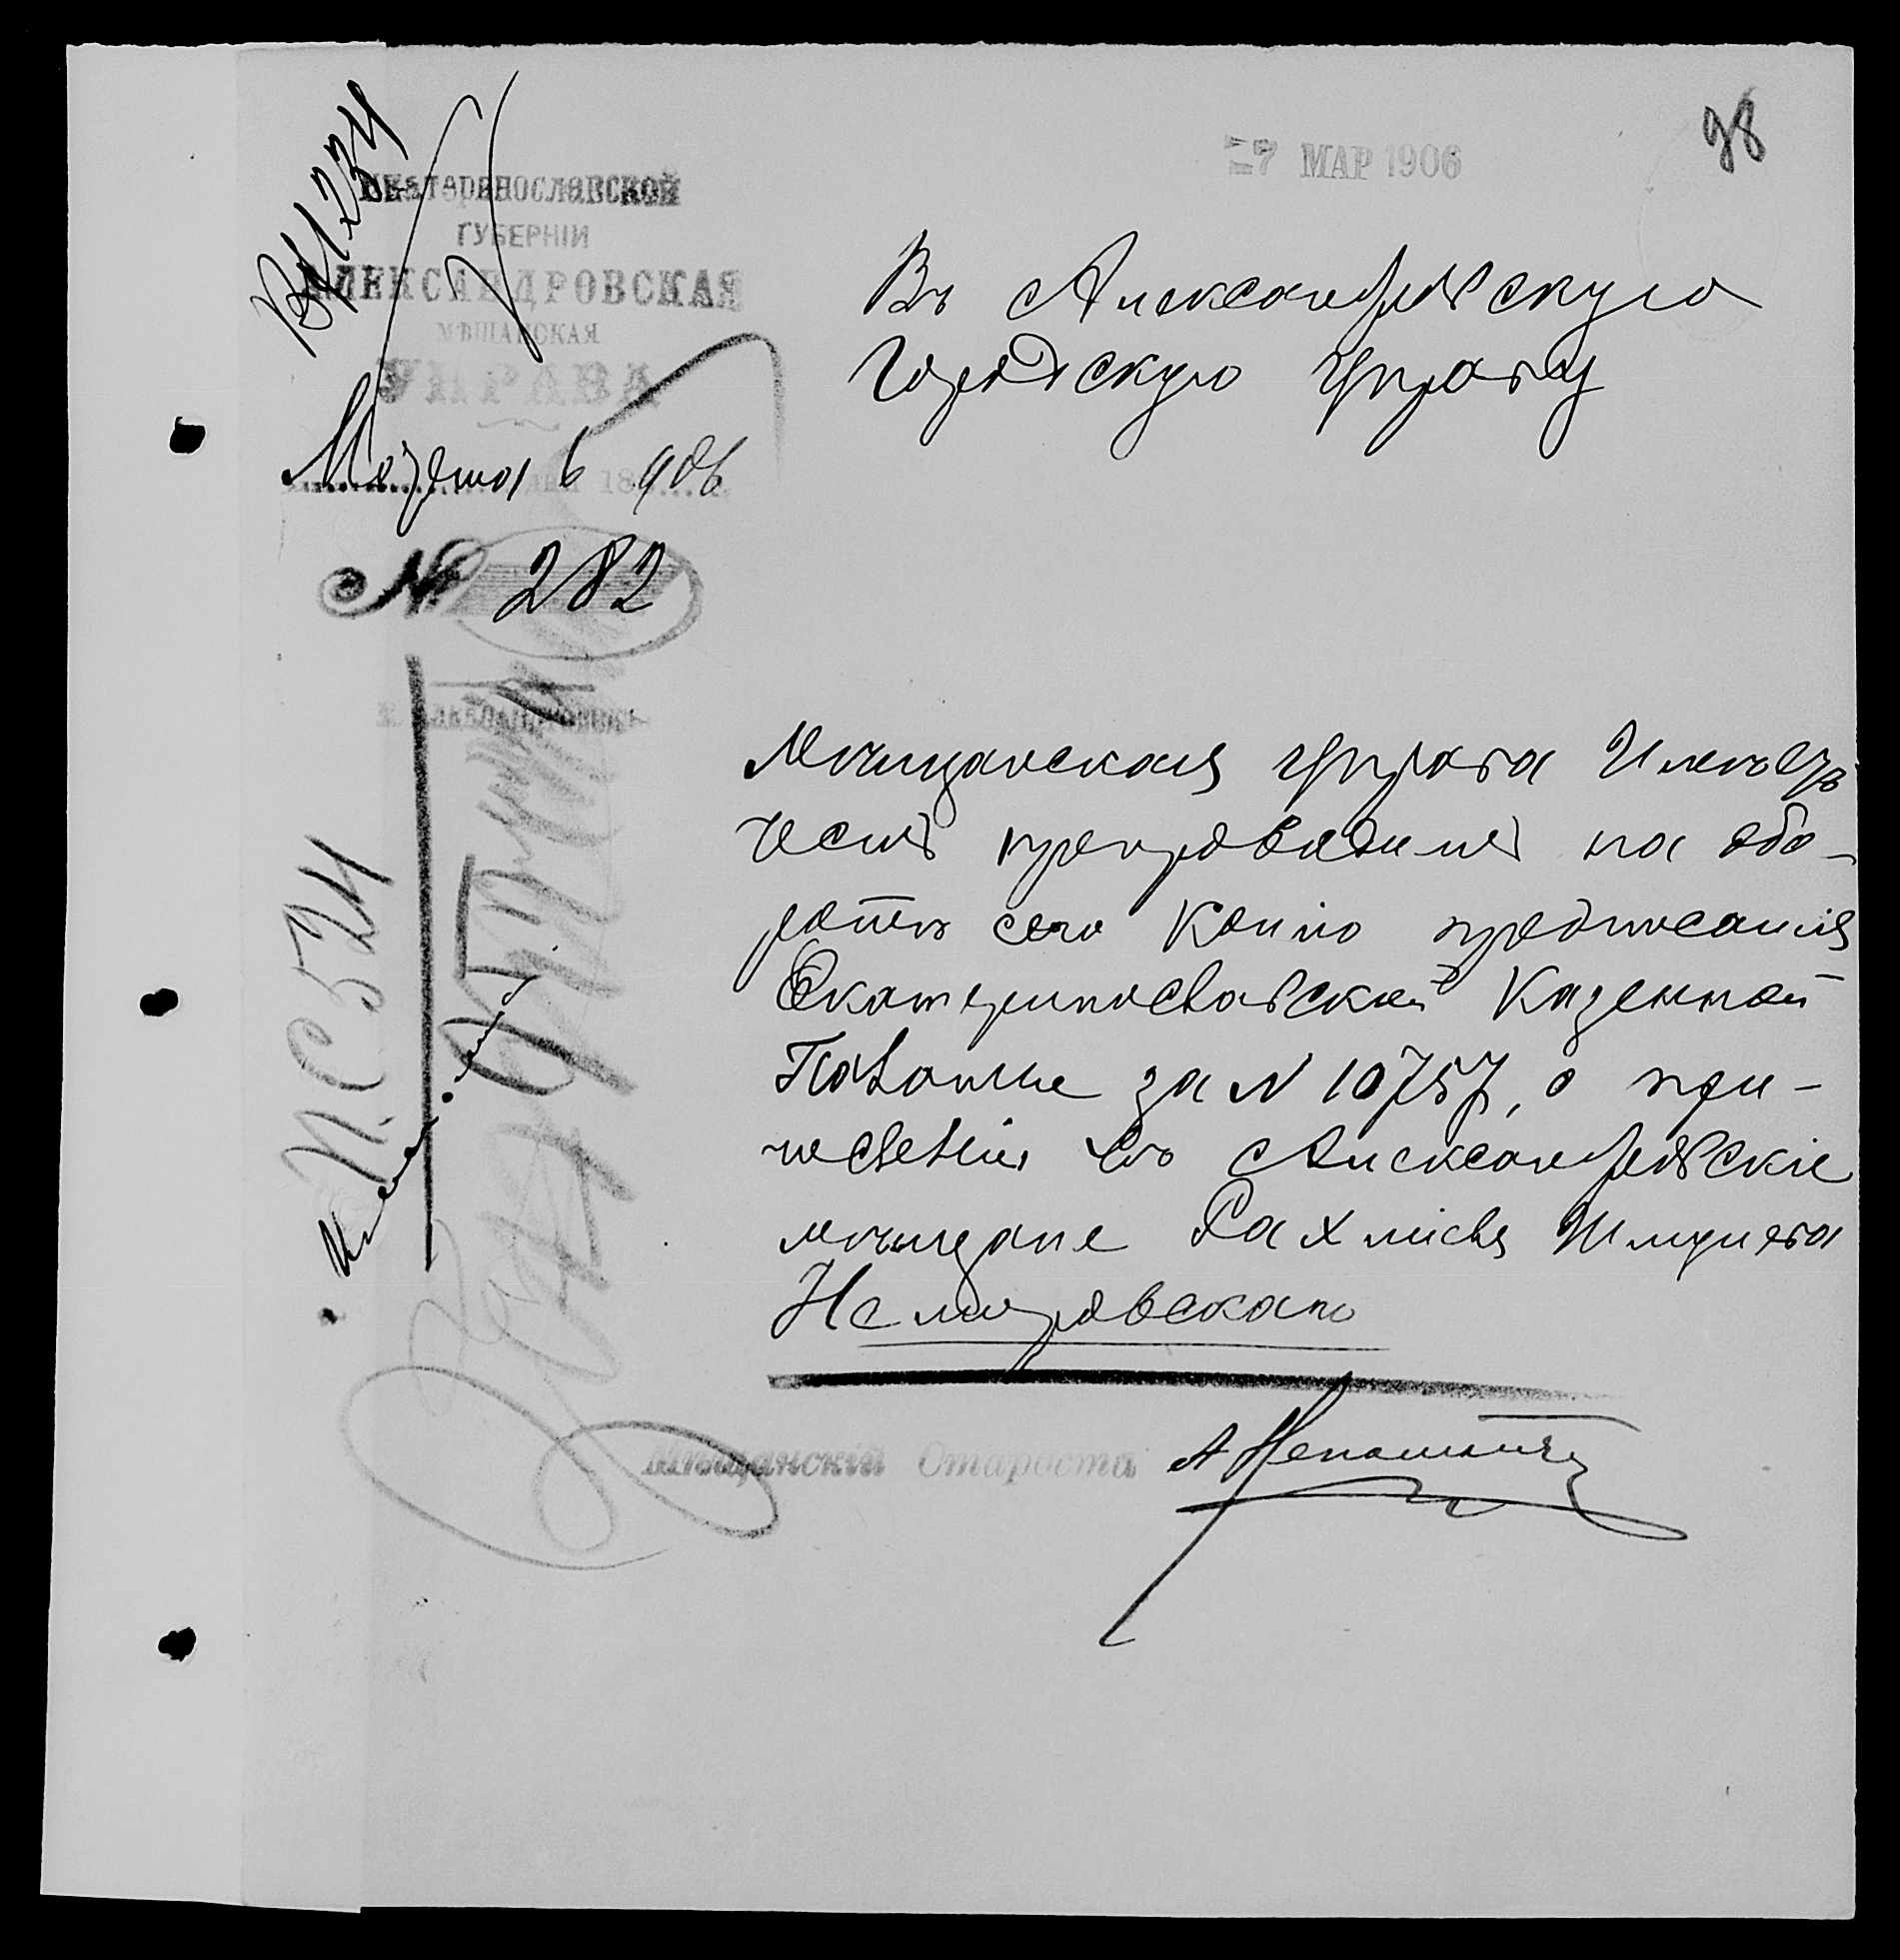 98
7 МАР 1906
Вх 1234
ЕКАТЕРИНОСЛАВСКОЙ
ГУБЕРНІИ
АЛЕКСАНДРОВСКАЯ
МѢЩАНСКАЯ
УПРАВА
Марта 6 906
№ 282
Г. АЛЕКСАНДРОВСКЪ
Въ Александровскую
Городскую Управу
Мѣщанская управа Имѣетъ
честь препроводить на обо-
ротѣ сего копію предписанія
Екатеринославской Казенной
Палаты за N 10757, о при-
численіи въ Александровскіе
мѣщане Рахміеля Шмулева
Немировскаго
Мѣщанскій Староста